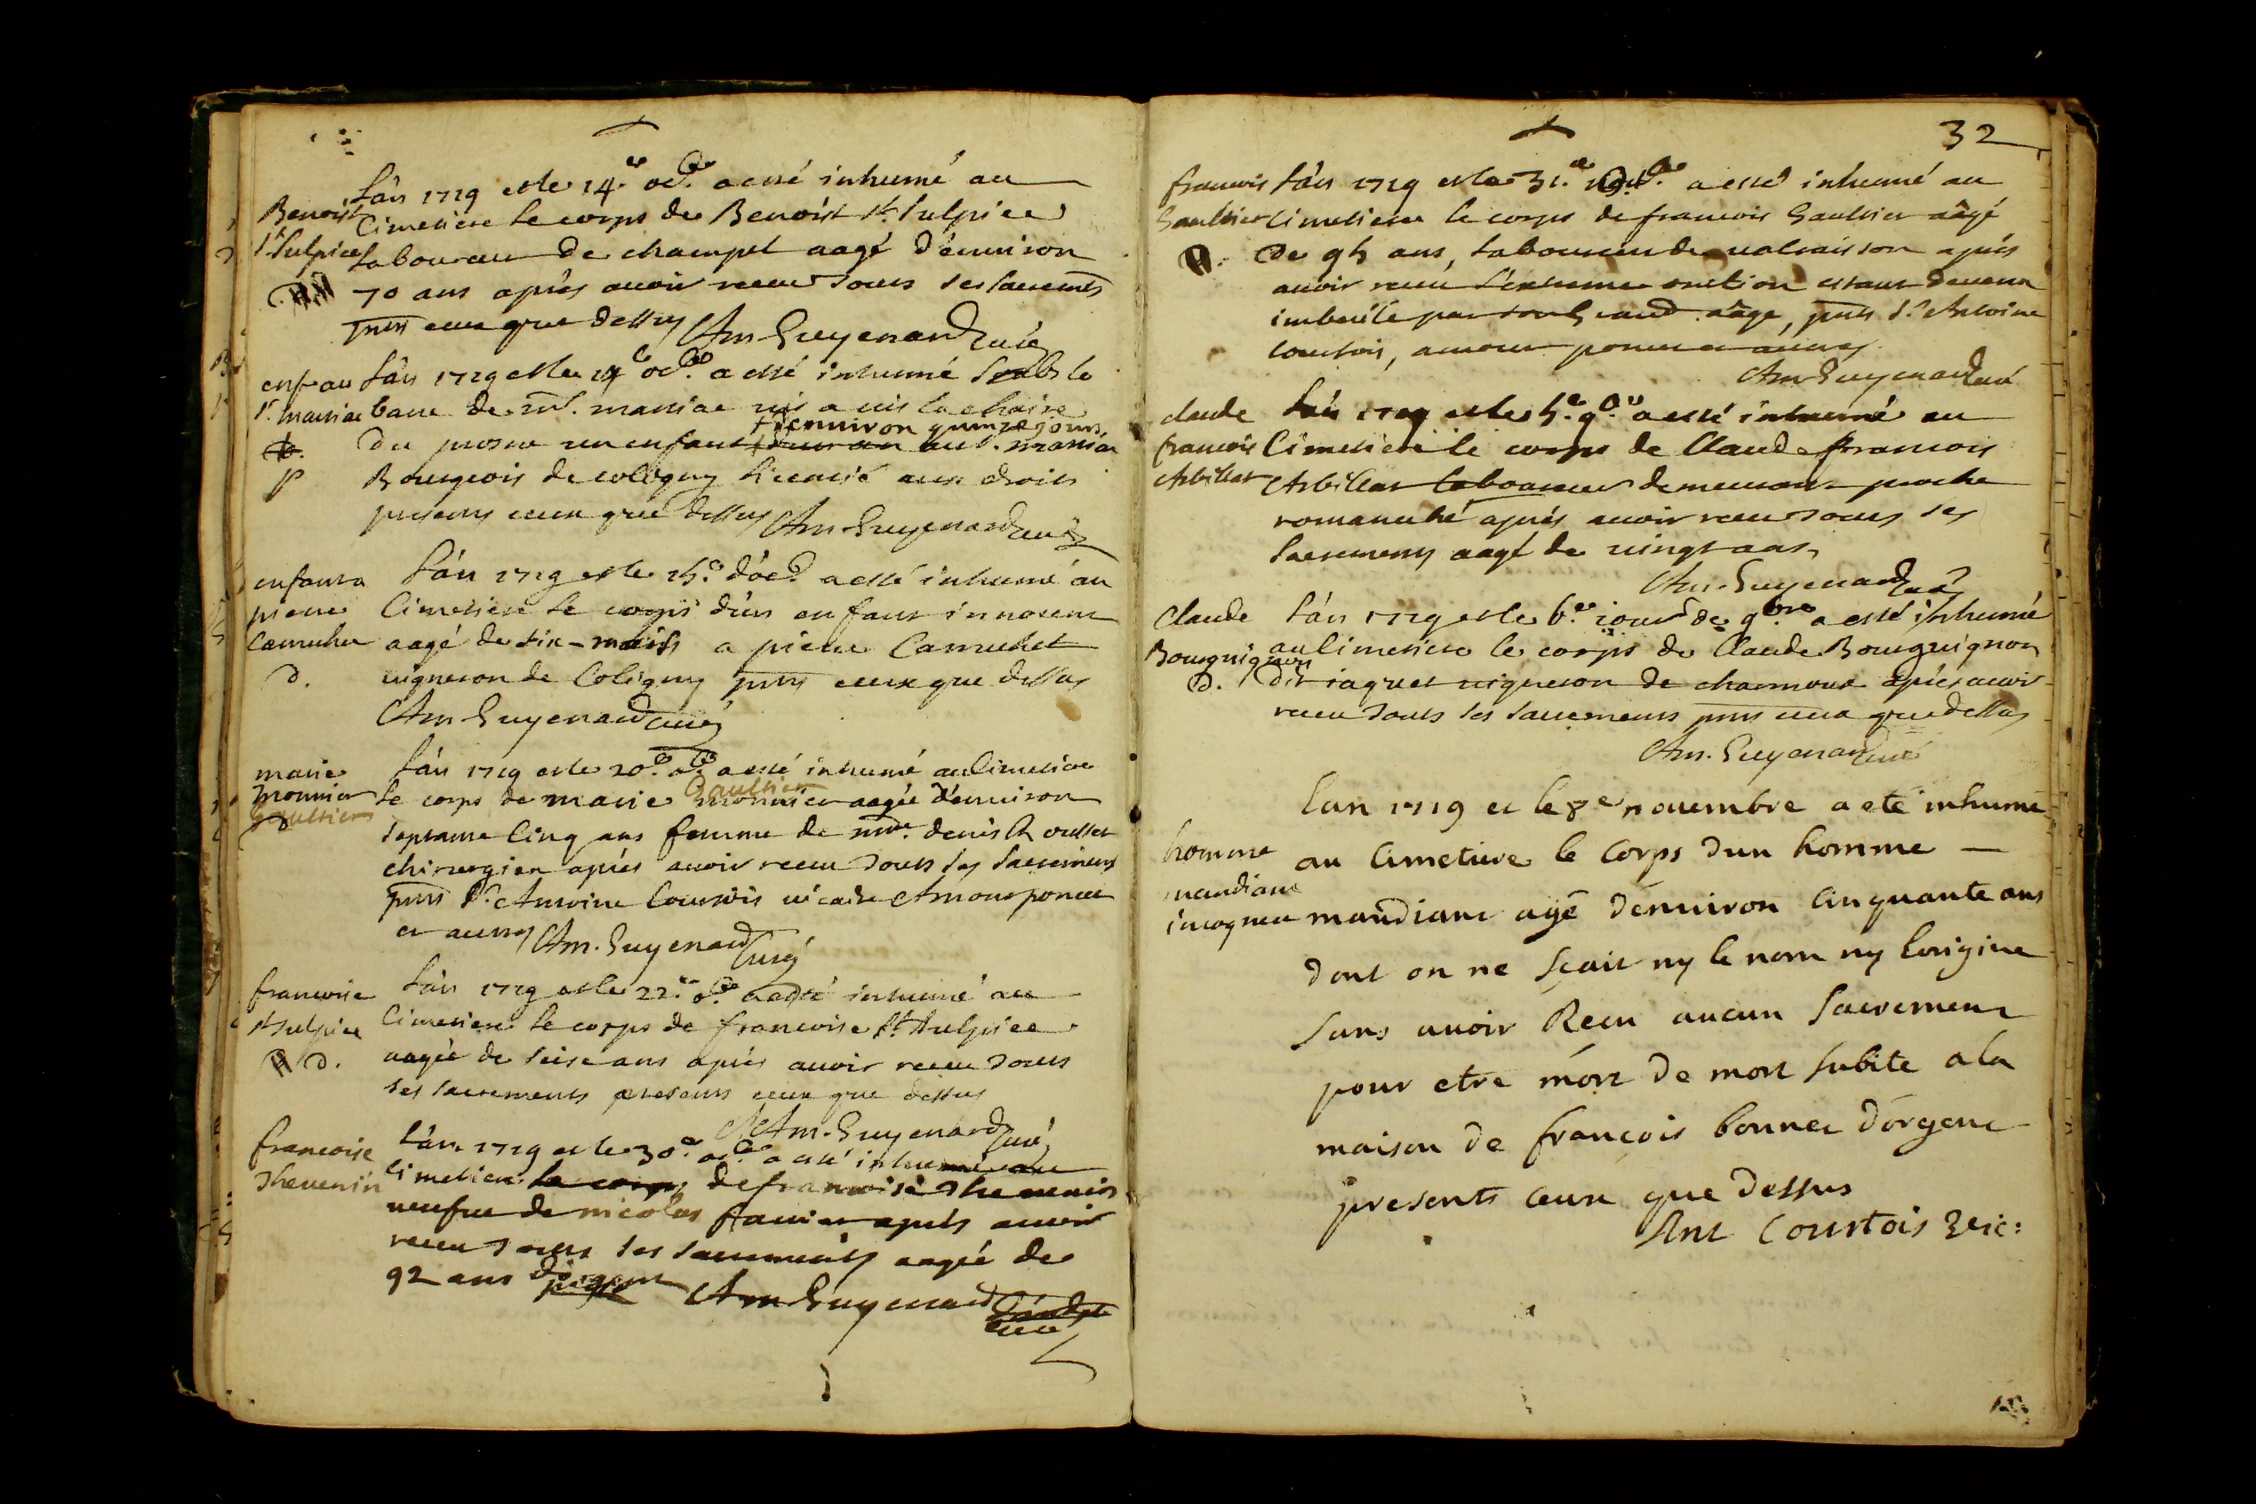 L'an 1719 et le 14.e oct.bre a esté inhumé au
Benoist
St Sulpice
Cimetiere le corps de Benoist St. Sulpice
laboureur de champel aagé d'enuiron
70 ans aprés auoir receu tous ses sacremts
pnts ceux que dessus Am. Guyenard curé
enfan au
Sr. massiac
p
L'an 1719 et le 14e oct.bre a esté inhumé soubs le
banc de mr. massiac vis a vis la chaire
d'enuiron quinze jours
du prosne un enfant au Sr. massiac
Bourgeois de coligny licencié aux droits
presens ceux que dessus Am. Guyenard curé
enfant a
pierre
Camuhet
d.
L'an 1719 et le 15.e d'oct. a esté inhumé au
Cimetiere le corps d'un enfant innocent
aagé de six-mois a pierre Camuhet
uigneron de Coligny pnts ceux que dessus
Am. Guyenard curé
marie
monnier
gaultier
L'an 1719 et le 20.e o.bre a esté inhumé au Cimetiere
Gaultier
le corps de marie monnier aagée d'enuiron
septante cinq ans femme de mre. denis Roullet
chirurgien aprés auoir receu tous ses sacremens
pnts Sr. Antoine Courtois vicaire Amour poncet
et autres Am. Guyenard curé
francoise
St Sulpice
d.
L'an 1719 et le 22.e o.bre a esté inhumé au
Cimetiere le corps de francoise St. Sulpice
aagée de seise ans aprés auoir receu tous
ses sacrements presens ceux que dessus
Am. Guyenard curé
francoise
Theuenin
L'an 1719 et le 30.e o.bre a esté inhumé au
Cimetiere le corps de francoise Theuenin
ueufue de nicolas fauier aprés auoir
receu tous ses sacrements aagée de
92 ans d'orgent
Am. Guyenard curé
32
francois
Gaultier
L'an 1719 et le 31.e a esté inhumé au
Cimetiere le corps de francois Gaultier aâgé
de 95 ans, laboureur de ualraisson aprés
auoir receu l'extreme onction estant deuenu
imbecile par son grand aâge, pnts Sr. Antoine
Courtois, amour poncet et autres
Am. Guyenard curé
claude
francois
Arbillat
L'an 1719 et le 5.e 9.bre a esté inhumé au
Cimetiere le corps de Claude francois
Arbillat laboureur demeurant proche
romanéché aprés auoir receu tous ses
sacremens aagé de uingt ans
Am. Guyenard curé
Claude
Bourguignon
d.
L'an 1719 et le 6.e iour de 9.bre a esté inhumé
au Cimetiere le corps de Claude Bourguignon
dit iaquet uigneron de charmoux aprés auoir
receu touts ses sacremens pnts ceux que dessus
Am. Guyenard curé
homme
mandiant
incogneu
lan 1719 et le 8e nouembre a eté inhumé
au Cimetiere le Corps dun homme —
mandiant agé denuiron Cinquante ans
dont on ne sçait ny le nom ny lorigine
sans auoir Receu aucun Sacrement
pour etre mort de mort subite a la
maison de françois bonnet dorgent
presents Ceux que dessus
Ant Courtois vic: